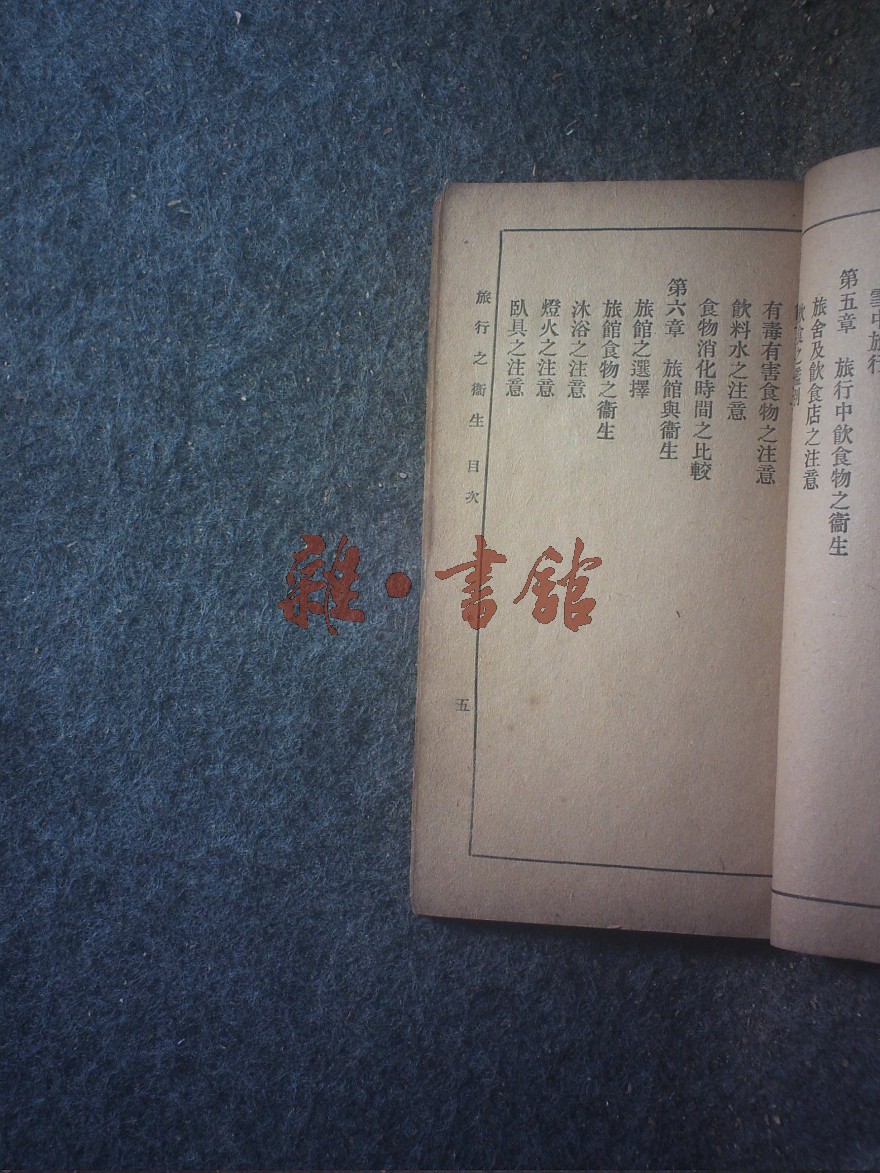 雪中旅行
第五章　旅行中飲食物之衞生
旅舍及飲食店之注意
飲食之
有毒有害食物之注意
飲料水之注意
食物消化時間之比較
第六章　旅館與衞生
旅館之選擇
旅館食物之衞生
沐浴之注意
燈火之注意
臥具之注意
旅行之衞生　目次
五
雜·書館